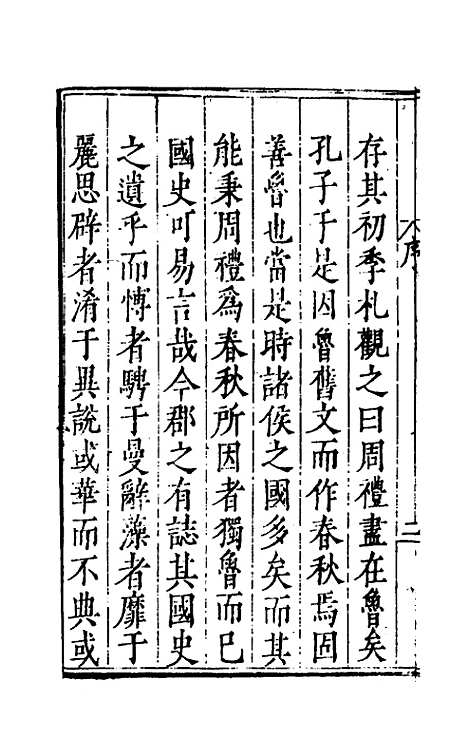 序
二
存其初季札觀之曰周禮盡在魯矣
孔子于是因魯舊文而作春秋焉固
善魯也當是時諸侯之國多矣而其
能秉周禮爲春秋所因者獨魯而已
國史可易言哉今郡之有誌其國史
之遺乎而博者騁于曼辭藻者靡于
麗思辟者淆于異說或華而不典或